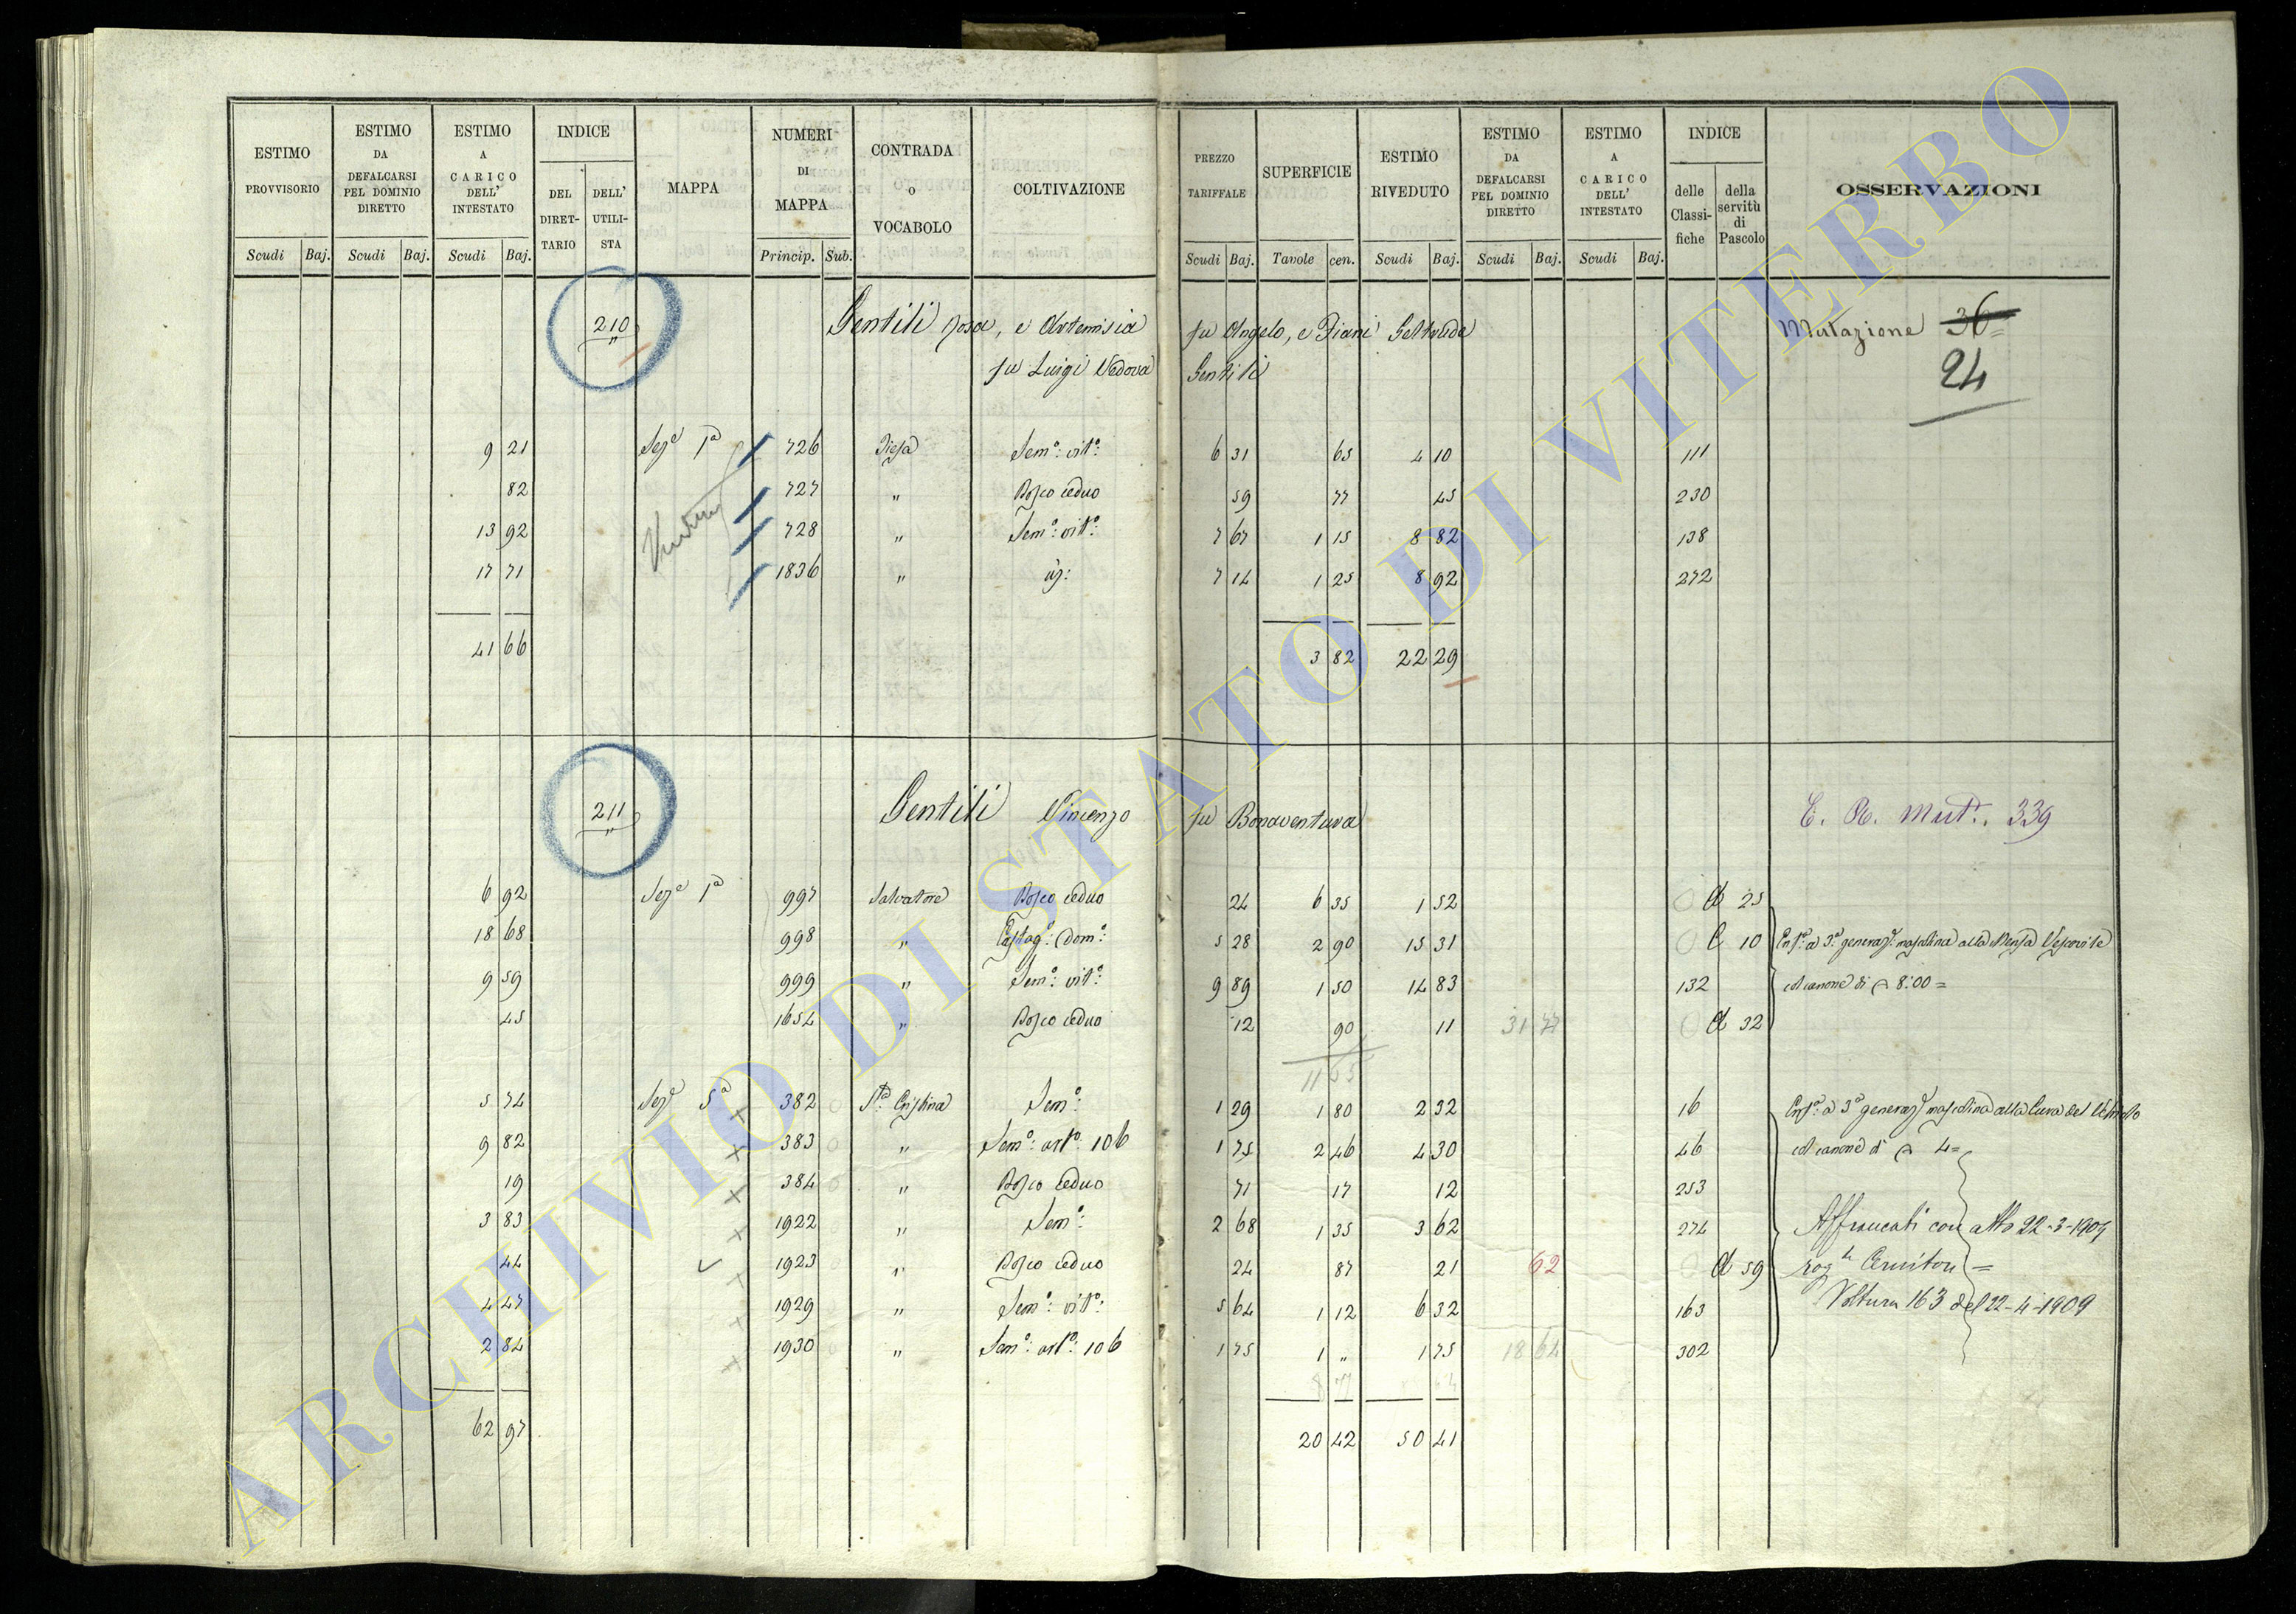 ESTIMO PROVVISORIO Scudi Baj.
ESTIMO DA DEFALCARSI PEL DOMINIO DIRETTO Scudi Baj.
ESTIMO A CARICO DELL' INTESTATO Scudi Baj.
INDICE DEL DIRET-TARIO DELL' UTILI-STA
MAPPA
NUMERI DI MAPPA Princip. Sub.
CONTRADA O VOCABOLO
COLTIVAZIONE
PREZZO TARIFFALE Scudi Baj.
SUPERFICIE Tavole cen.
ESTIMO RIVEDUTO Scudi Baj.
ESTIMO DA DEFALCARSI PEL DOMINIO DIRETTO Scudi Baj.
ESTIMO A CARICO DELL' INTESTATO Scudi Baj.
INDICE delle Classi-fiche della servitù di Pascolo
OSSERVAZIONI
210 Gentili Rosa, e Artemisia fu Angelo, e Fiani Geltrude Mutazione 36
fu Luigi Vedova Gentili 24
9 21 Sez.e 1a 726 Piesa Sem.o: vit.o: 6 31 65 4 10 111
82 727 " Bosco ceduo 59 77 45 230
13 92 728 " Sem.o: vit.o: 7 67 1 15 8 82 138
17 71 1836 " id: 7 14 1 25 8 92 272
41 66 3 82 22 29
211 Gentili Vincenzo fu Bonaventura C. R. Mut. 339
6 92 Sez.e 1a 997 Salvatore Bosco ceduo 24 6 35 1 52 A 25
18 68 998 " Castag.o: Dom.o: 5 28 2 90 15 31 C 10 Enf.a a 3.a generaz.e mascolina alla Mensa Vescovile
9 59 999 " Sem.o: vit.o: 9 89 1 50 14 83 132 col canone di 8:00 =
45 1654 " Bosco ceduo 12 90 11 31 77 A 32
11 65
5 74 Sez.e 5a 382 S.ta Cristina Sem.o: 1 29 1 80 2 32 16 Enf.a a 3.a generaz.e mascolina alla Cura del
9 82 383 " Sem.o: art.o: 106 1 75 2 46 4 30 46 col canone di 4=
19 384 " Bosco ceduo 71 17 12 253
3 83 1922 " Sem.o: 2 68 1 35 3 62 274 Affrancati con atto 22-3-1909
44 1923 " Bosco ceduo 24 87 21 62 A 59 =
4 47 1929 " Sem.o: vit.o: 5 64 1 12 6 32 163 Voltura 163 del 22-4-1909
2 84 1930 " Sem.o: art.o: 106 1 75 1 " 1 75 18 64 302
8 77
62 97 20 42 50 41
ARCHIVIO DI STATO DI VITERBO